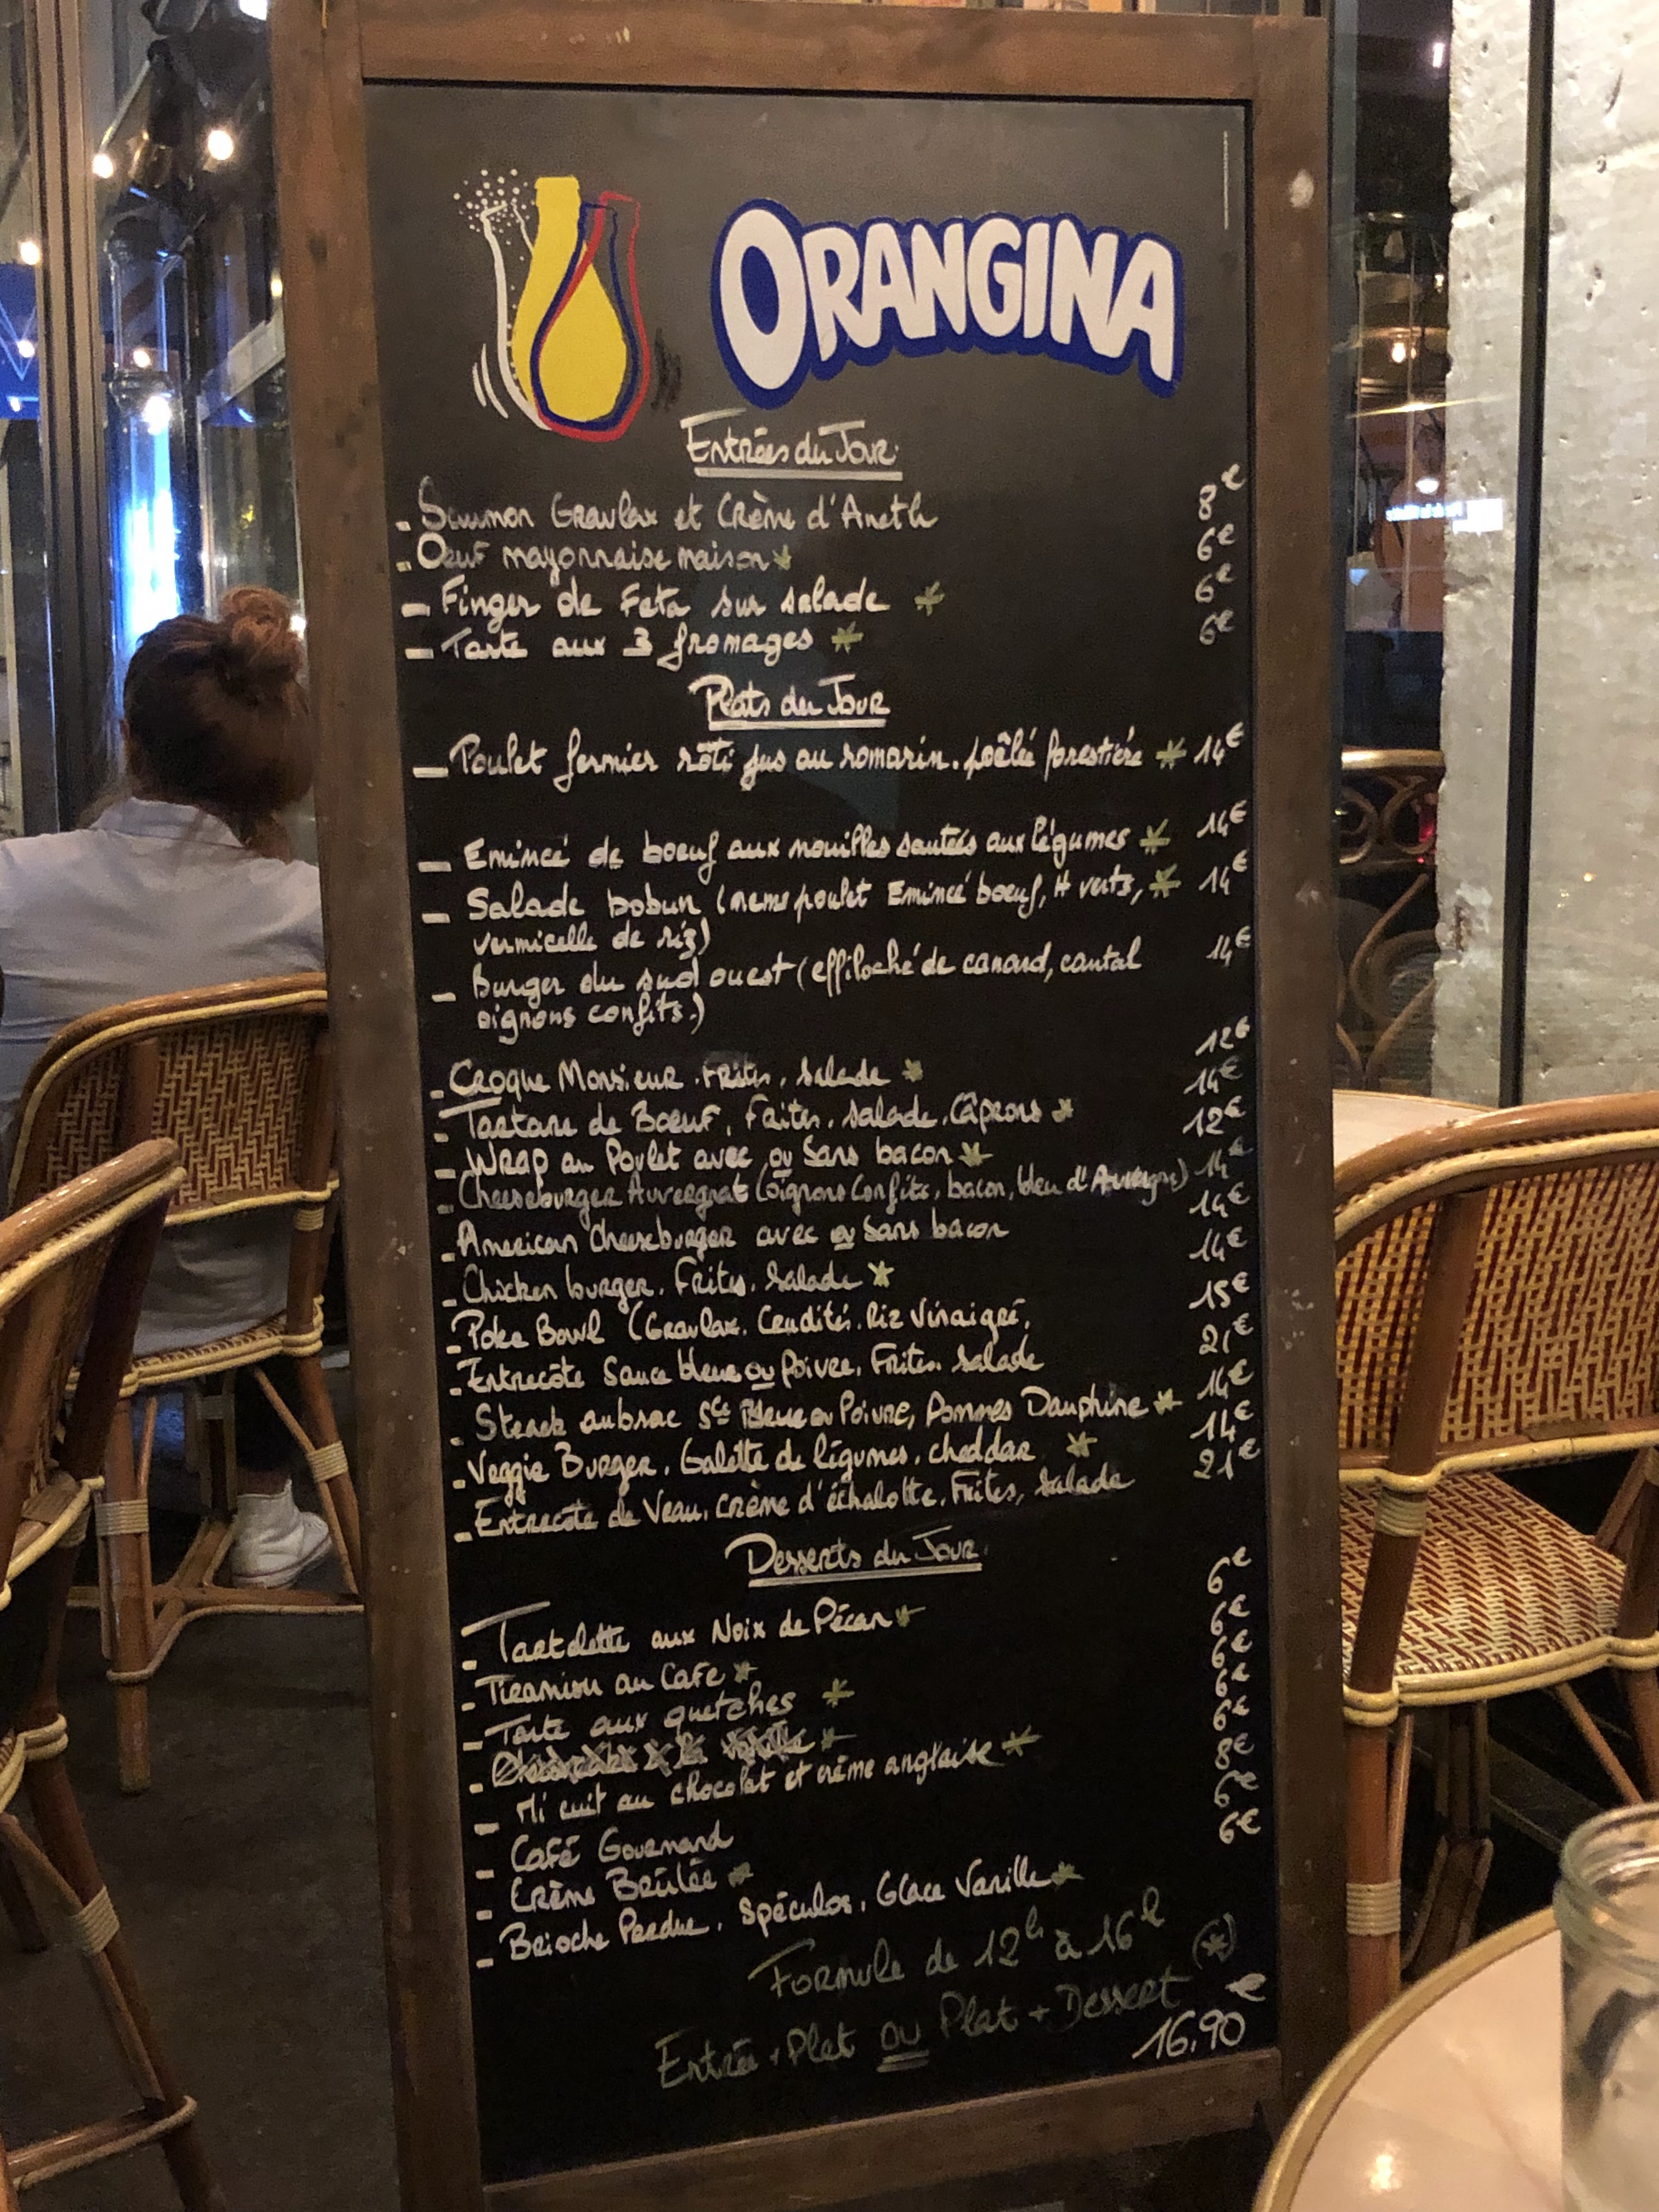 ORANGINA
Entrées du Jour
- Saumon Gravlax et Crème d'Aneth 8€
- Oeuf mayonnaise maison * 6€
- Finger de Feta sur salade * 6€
- Tarte aux 3 fromages * 6€
Plats du Jour
- Poulet fermier rôti jus au romarin. poêlée forestière * 14€
- Emincé de boeuf aux nouilles sautées aux légumes * 14€
- Salade bobun (nems poulet Emincé boeuf, H verts, * 14€
vermicelle de riz)
- Burger du sud ouest (effiloché de canard, cantal 14€
oignons confits.)
- Croque Monsieur. Frites, Salade * 12€
- Tartare de Boeuf, Frites, Salade, Câprons * 14€
- Wrap au Poulet avec ou Sans bacon * 12€
- Cheeseburger Auvergnat (oignons Confits, bacon, bleu d'Auvergne) 14€
- American Cheeseburger avec ou Sans bacon 14€
- Chicken burger. Frites. Salade * 14€
- Poke Bowl (Gravlax. Crudités. Riz Vinaigré, 15€
- Entrecôte Sauce bleue ou Poivre, Frites Salade 21€
- Steack aubrac Sce Bleue ou Poivre, Pommes Dauphine * 14€
- Veggie Burger, Galette de légumes, cheddar * 14€
- Entrecôte de Veau, crème d'échalotte, Frites, Salade 21€
Desserts du Jour
- Tartelette aux Noix de Pécan * 6€
- Tiramisu au Café * 6€
- Tarte aux quetches * 6€
- * 6€
- Mi cuit au chocolat et crème anglaise * 6€
- Café Gourmand 8€
- Crème Brûlée * 6€
- Brioche Perdue, Spéculos, Glace Vanille * 6€
Formule de 12h à 16h
Entrée + Plat ou Plat + Dessert (*)
16,90€